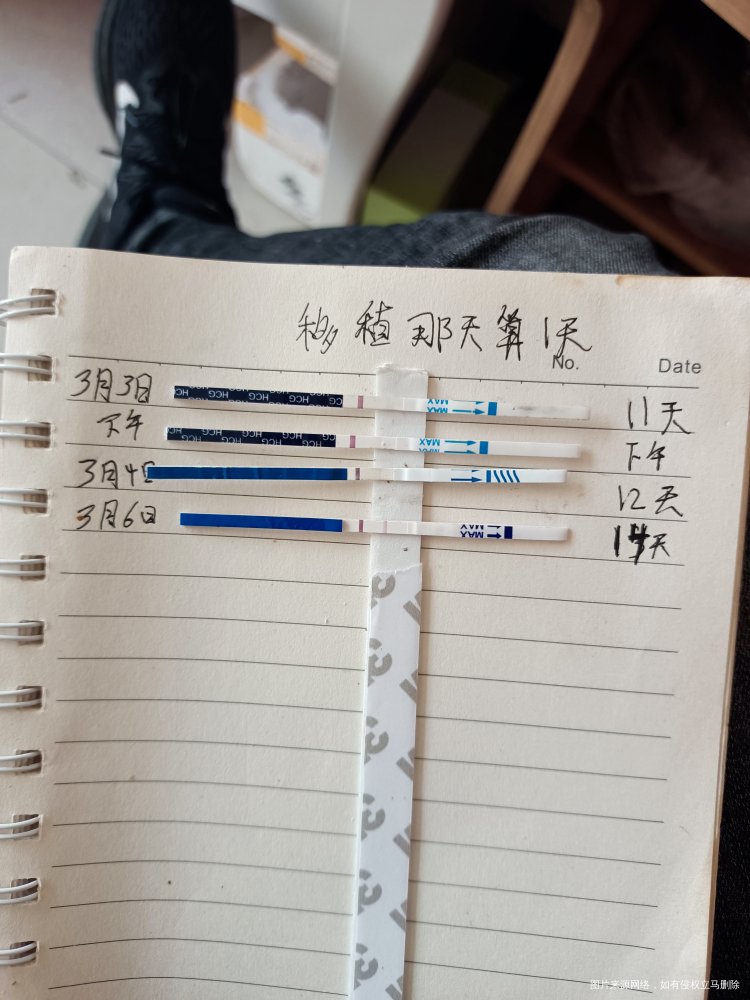 移植那天算1天
No.
Date
3月3日 HCG HCG HCG HCG MAX 11天
下午 HCG HCG HCG HCG MAX 下午
3月4日 12天
3月6日 MAX 天
图片来源网络，如有侵权立马删除